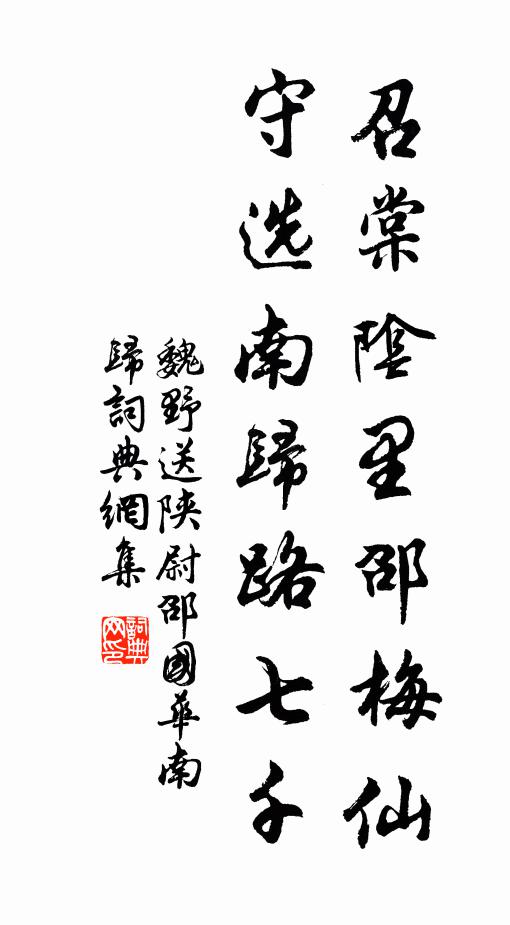 召棠陰里邵梅仙
守选南歸路七千
魏野送陝尉邵國華南
歸詞典網集
詞典网印